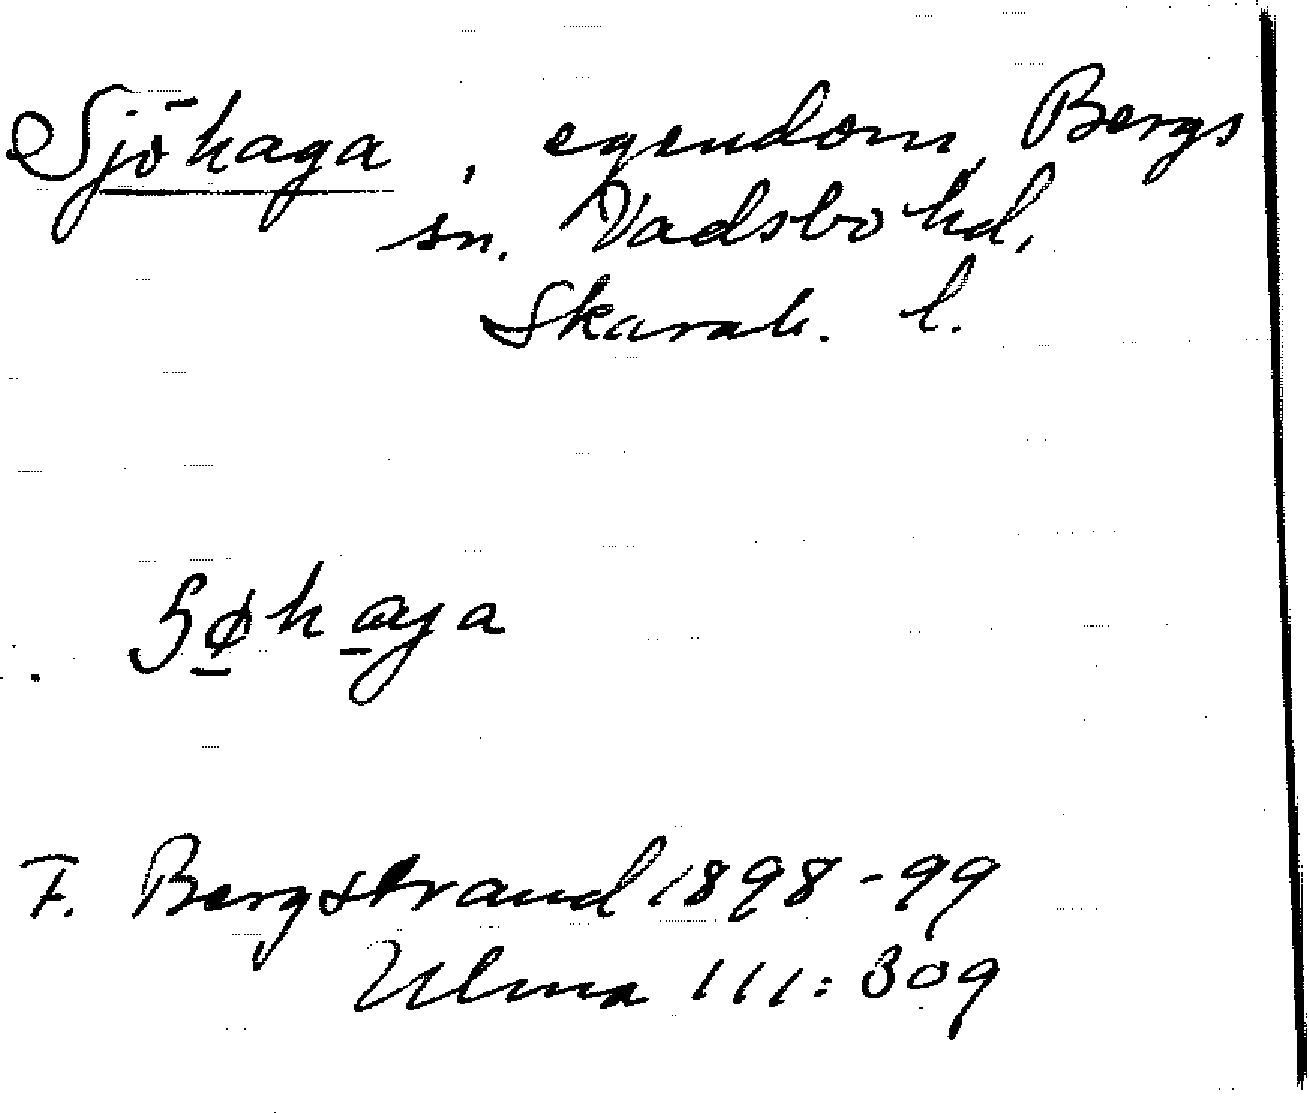 Sjöhaga, egendom, Bergs
sn. Vadsbo hd,
Skarab. l.
Sø̠ha̠ga
F. Bergstrand 1898-99
Ulma 111:309